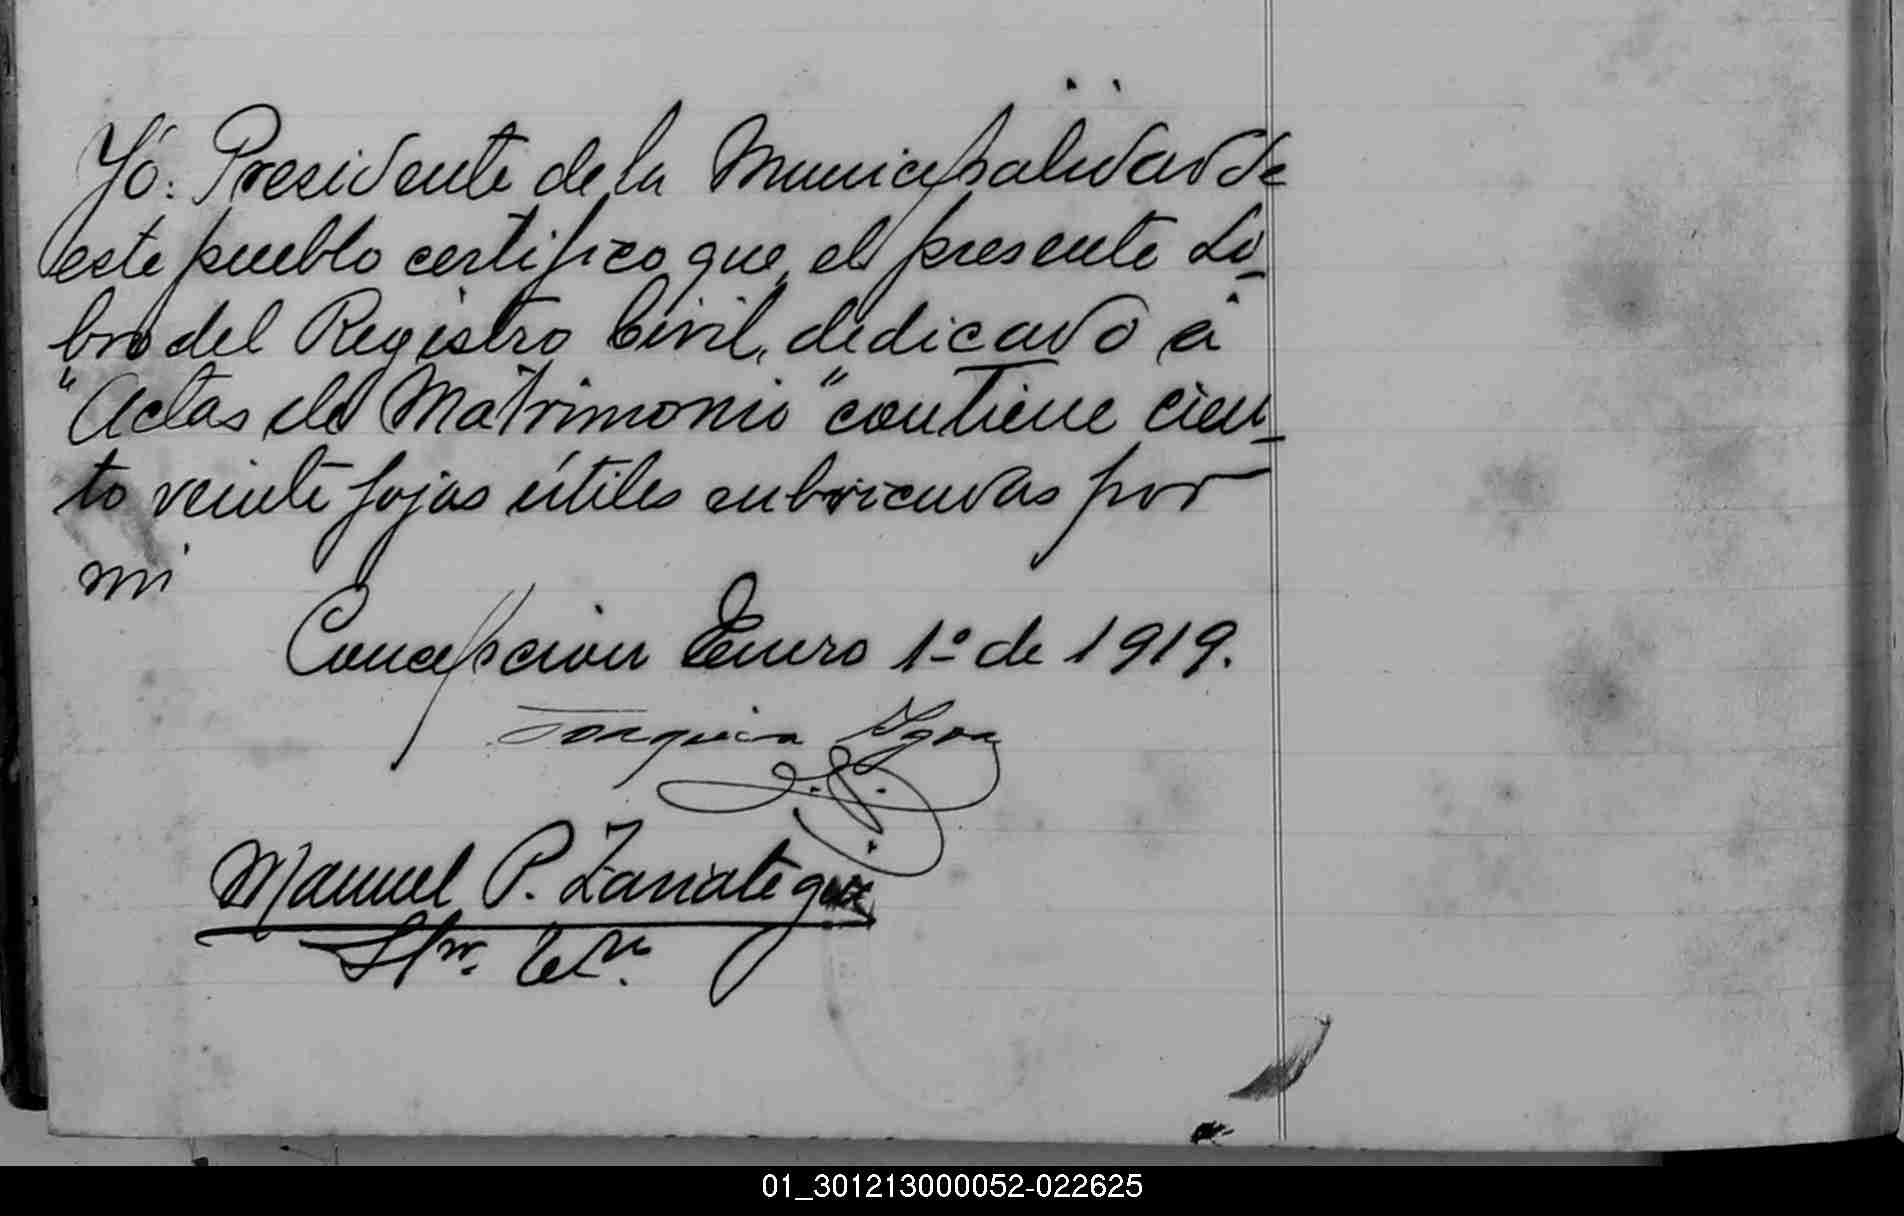 Yó: Presidente de la Municipalidad de
este pueblo certifico que el presente Li-
bro del Registro Civil, dedicado á
"Actas de Matrimonio" contiene cien-
to veinte fojas útiles rubricadas por
mi
Concepcion Enero 1º de 1919.
Joaquin
Manuel P. Zarrategui
01_301213000052-022625